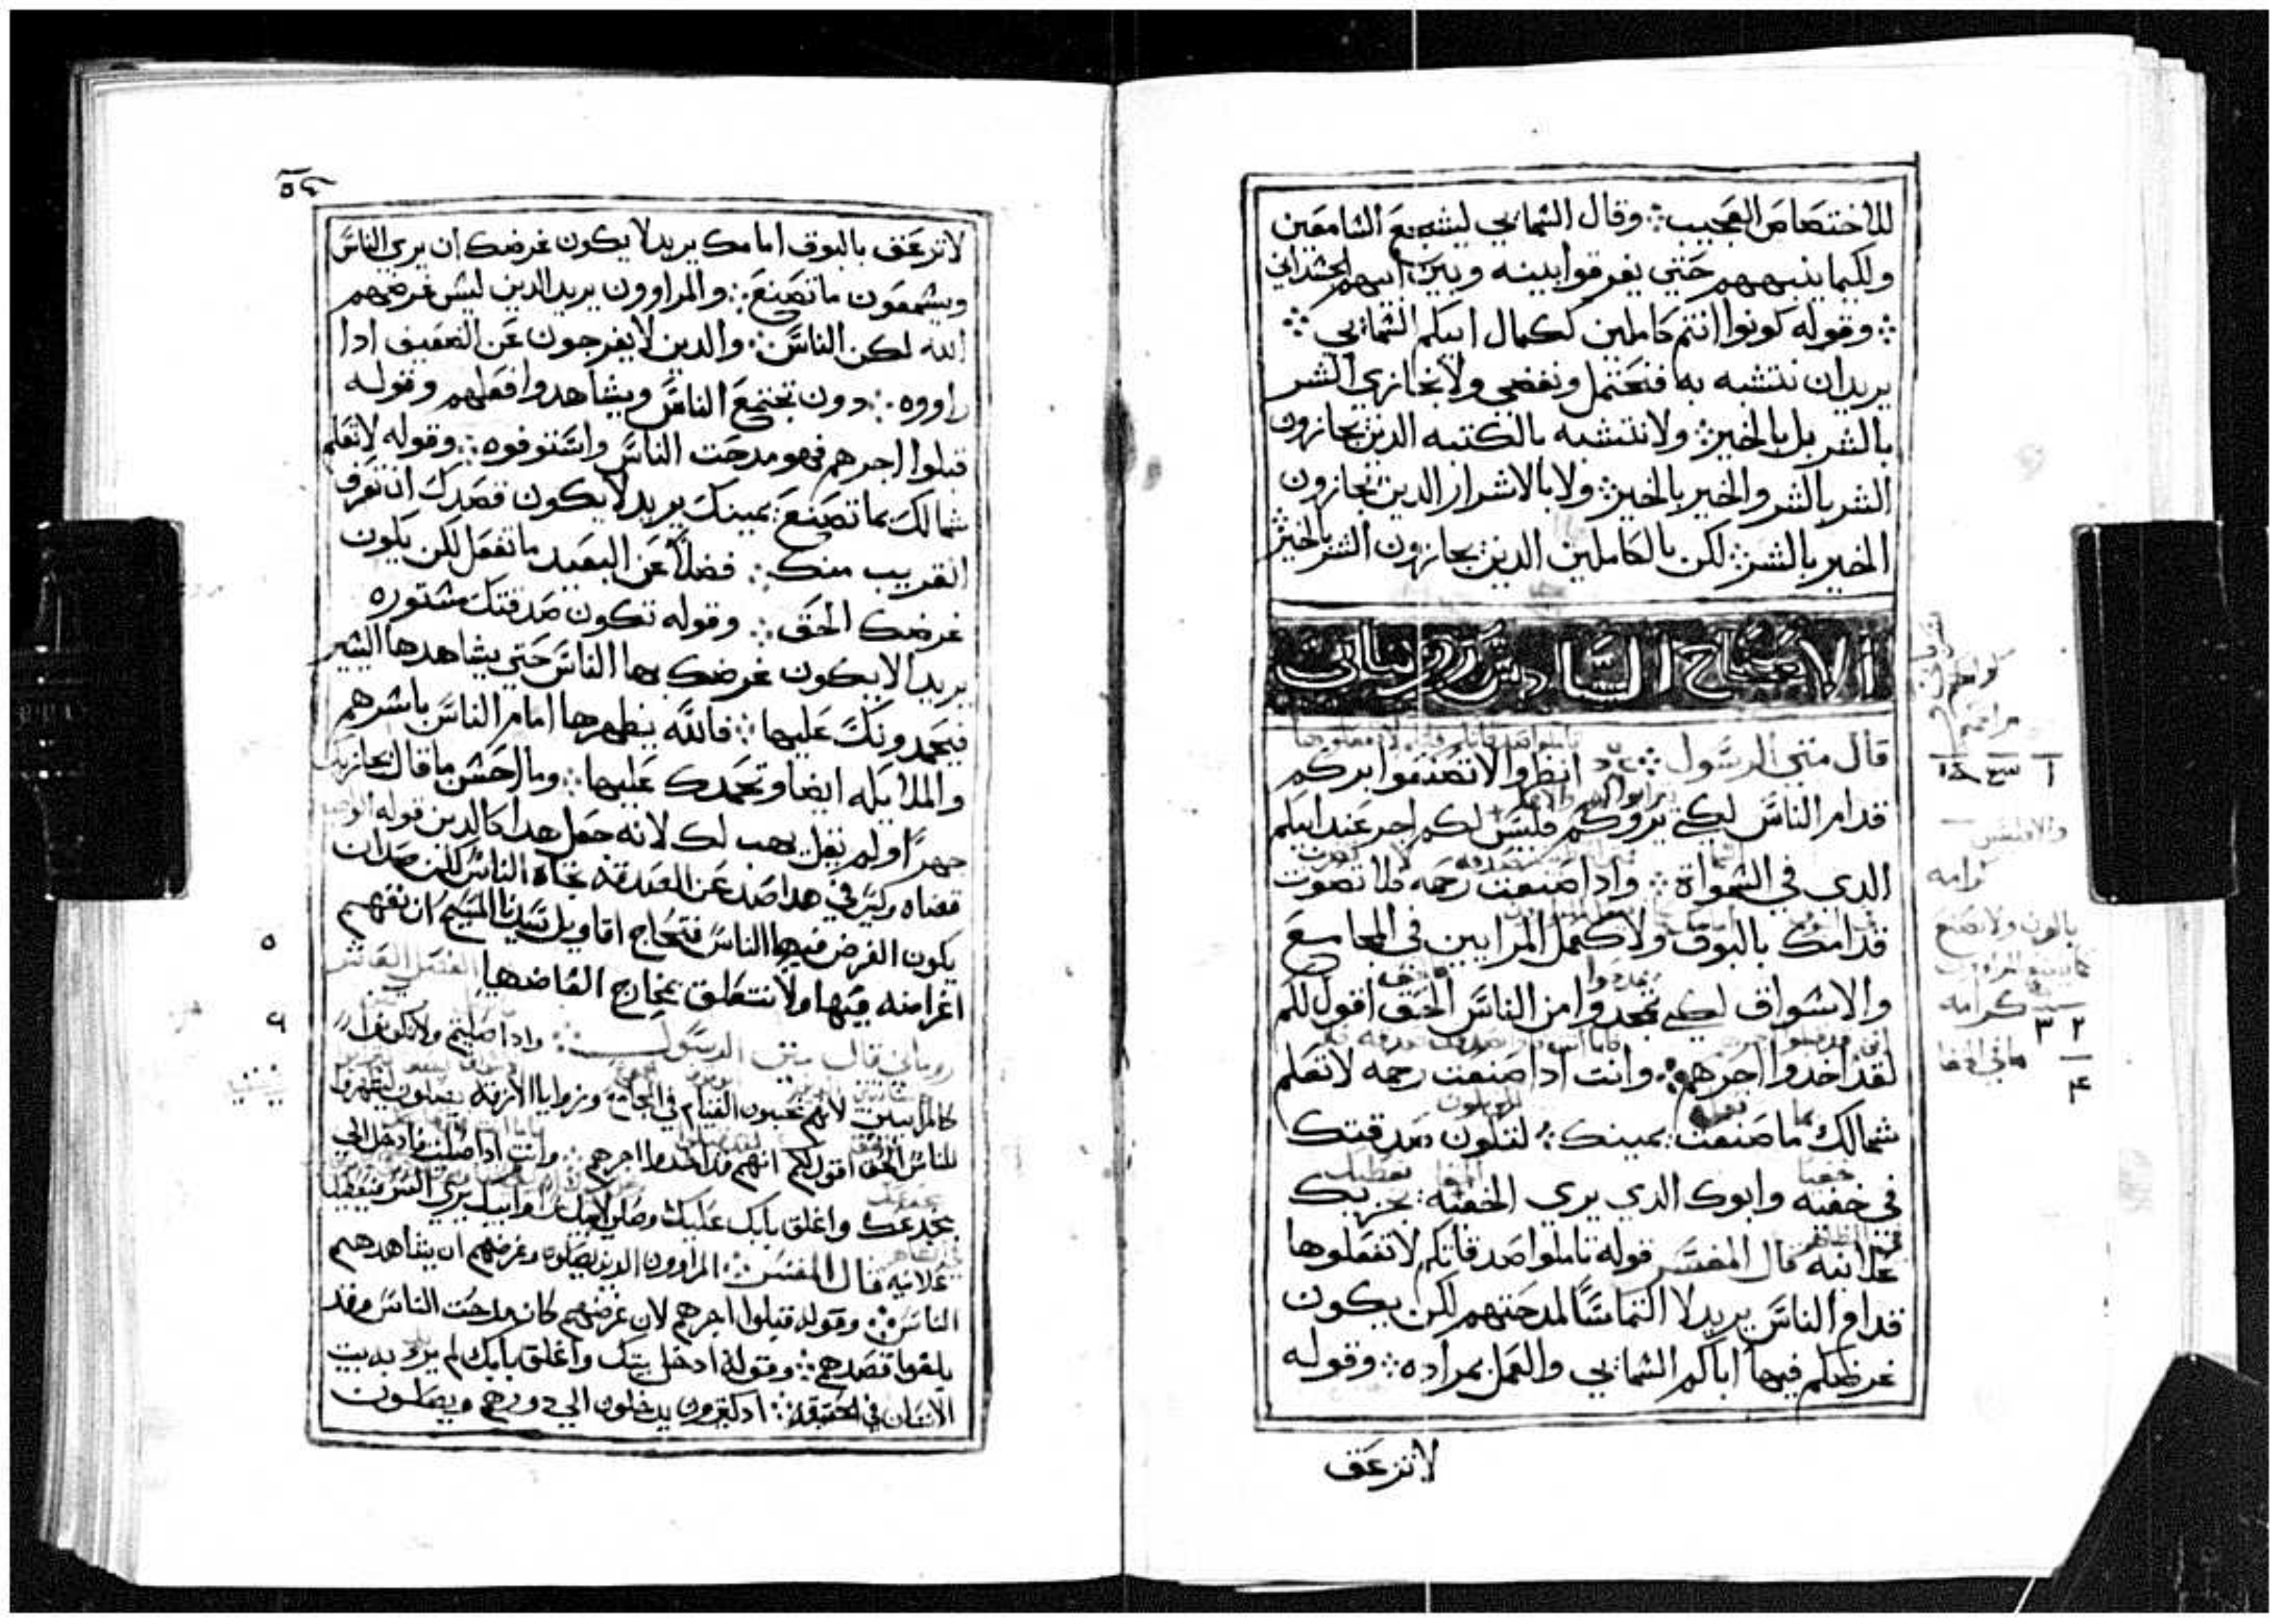 للاختصاص العجيب ؞ وقال السمايي ليشجع السامعين
ولكيما ينبههم حتي يفرقوا بينه وبين ابيهم الجسداني
؞ وقوله كونوا انتم كاملين ككمال ابيكم السمايي ؞
يريد ان نتشبه به فنحتمل ونغضي ولا نجازي الشر
بالشر بل بالخير ؞ ولا نتشبه بالكتبه الدين يجازون
الشر بالشر والخير بالخير ؞ ولا بالاشرار الدين يجازون
الخير بالشر ؞ لكن بالكاملين الدين يجازون الشر بالخير
الاصحاح السادس روماني
قال متي الرسول ؞ انظروا الا تصنعوا بركم
قدام الناس لكي يروكم فليس لكم اجر عند ابيكم
الدي في السمواة ؞ وادا صنعت رحمه فلا تصوت
قدامك بالبوق ولا كعمل المرايين في المجامع
والاسواق لكي يمجدوا من الناس الحق اقول لكم
لقد اخدوا اجرهم ؞ وانت ادا صنعت رحمه لا تعلم
شمالك ما صنعت يمينك ؞ لتكون صدقتك
في خفيه وابوك الدي يري الخفيه يجزيك
علانيه قال المفسر قوله تاملوا صدقاتكم لا تفعلوها
قدام الناس يريد لا التماسا لمدحتهم لكن يكون
غرضكم فيها اباكم السمايي والعمل بمراده ؞ وقوله
لا تزعق
كرامه
٢ ٣
٤
٥٤
لا تزعق بالبوق امامك يريد لا يكون غرضك ان يري الناس
ويسمعون ما تصنع ؞ والمراوون يريد الدين ليس غرضهم
الله لكن الناس ؞ والدين لا يفرجون عن الضعيف ادا
راووه ؞ دون تجتمع الناس ويشاهدوا افعلهم وقوله
قبلوا اجرهم فهو مدحت الناس واستوفوه ؞ وقوله لا تعلم
شمالك بما تصنع يمينك يريد لا يكون قصدك ان تعرف
القريب منك ؞ فضلا عن البعيد ما تفعل لكن يكون
غرضك الحق ؞ وقوله تكون صدقتك مستوره
يريد الا يكون غرضك بها الناس حتي يشاهدها البشر
فيحمدونك عليها ؞ فالله يظهرها امام الناس باسرهم
والملايكه ايضا وتحمدك عليها ؞ وما احسن ما قال يجازيك
جهرا ولم يقل يهب لك لانه جعل هدا كالدين قوله
قضاه وليس في هدا صد عن الصدقه تجاه الناس لكن صد ان
يكون الغرض فيها الناس فتحتاج اقاويل سيدنا المسيح ان نفهم
اغراضه فيها ولا نتعلق بمخارج الفاضها الفصل العاشر
٥
روماني قال متي الرسول ؞ وادا صليتم ولا تكونوا
٦
كالمرايين لانهم يحبون القيام في المجامع وزوايا الازقه يصلون ليظهروا
للناس الحق اقول لكم انهم قد اخدوا اجرهم ؞ وانت ادا صليت فادخل الي
مخدعك واغلق بابك عليك وصلي لابيك سرا وابيك يري السر فيعطيك
علانيه قال المفسر ؞ المراوون الدين يصلون وغرضهم ان يشاهدهم
الناس ؞ وقوله قبلوا اجرهم لان غرضهم كان مدحت الناس وقد
بلغوا قصدهم ؞ وقوله ادخل بيتك واغلق بابك لم يرد به بيت
الانسان في الحقيقه ؞ اد كثيرون يدخلون الي دورهم ويصلون